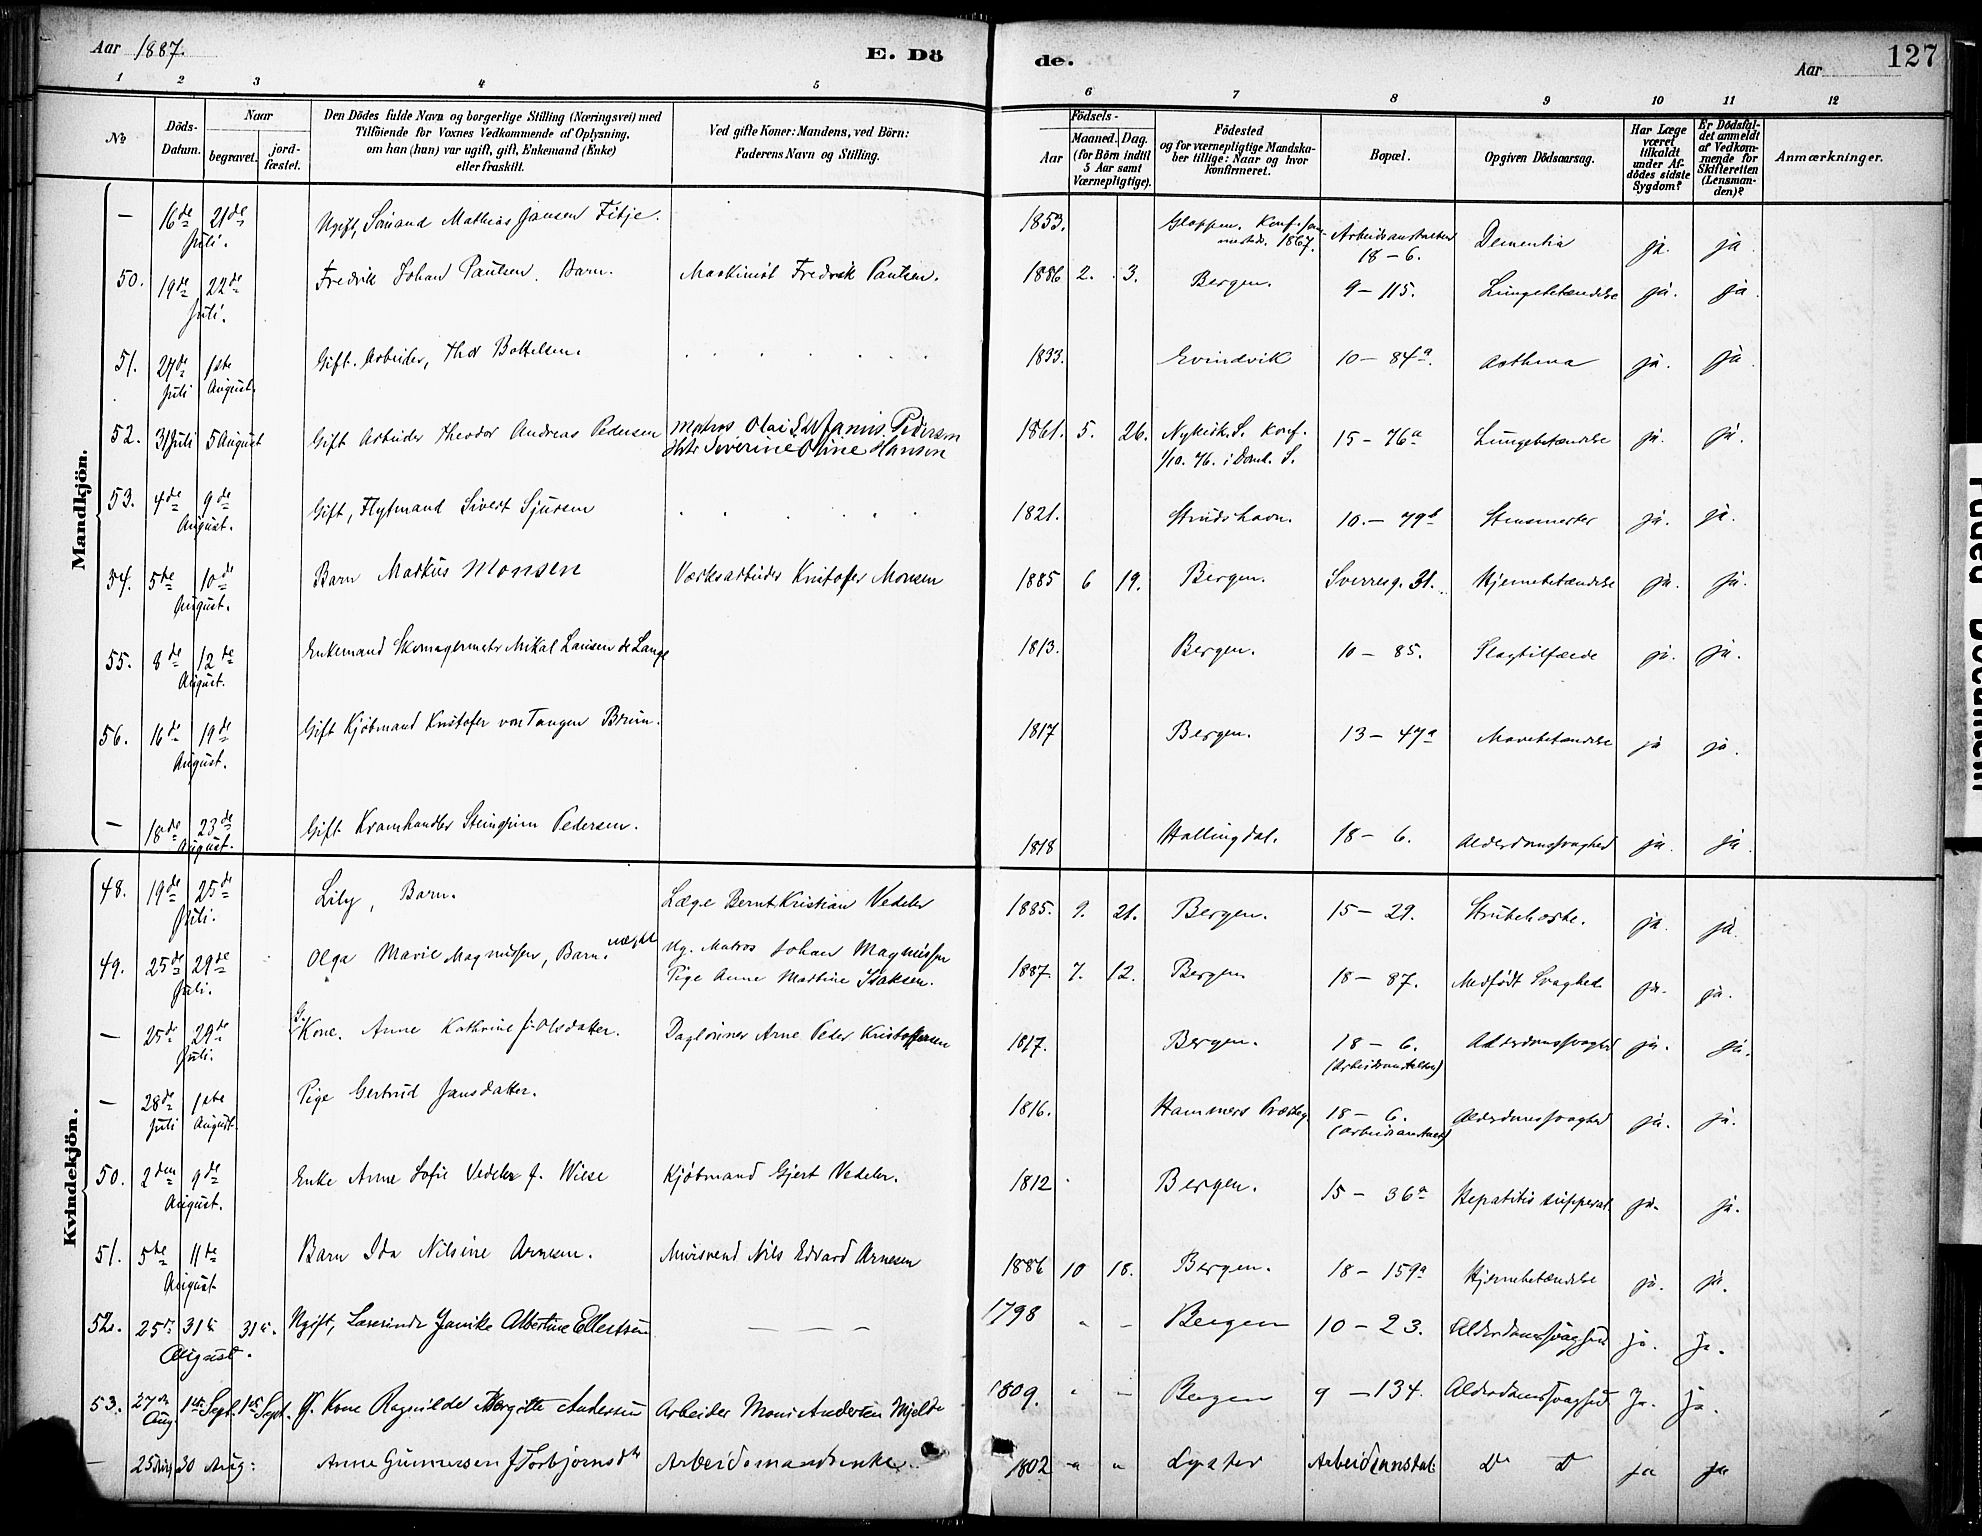 Aar 1887.
E. Dö
de.
Aar
127
1 2 3 4 5 6 7 8 9 10 11 12
№
Döds-Datum.
Naar
begravet.
jord-fæstet.
Den Dödes fulde Navn og borgerlige Stilling (Næringsvei) med
Tilföiende for Voxnes Vedkommende af Oplysning,
om han (hun) var ugift, gift, Enkemand (Enke)
eller fraskilt.
Ved gifte Koner: Mandens, ved Börn:
Faderens Navn og Stilling.
Födsels-
Aar
Maaned. Dag.
(for Börn indtil
5 Aar samt
Værnepligtige).
Födested
og for værnepligtige Mandska-
ber tillige: Naar og hvor
konfirmeret.
Bopæl.
Opgiven Dödsaarsag.
Har Læge
været
tilkaldt
under Af-
dödes sidste
Sygdom?
Er Dödsfal-
det anmeldt
af Vedkom-
mende for
Skifteretten
(Lensman-
den)?
Anmærkninger.
Mandkjön.
— 16de 21de Juli. Ugift, Mathias Jansen Fitje. 1853. Gloppen. Konf. 1867. Arbeidsanstalten 18-6. Dementia ja. ja
50. 19de 22de Juli. Fredrik Johan Paulsen. Barn. Maskinist Fredrik Paulsen. 1886 2. 3. Bergen. 9-115. Lungebetændelse ja. ja
51. 27de Juli 1ste August. Gift. Arbeider, Thor Bottelsen. 1833. Evindvik 10-84a. Asthma ja. ja
52. 31 Juli 5 August Gift Arbeider Theodor Andreas Pedersen Matros Olai Pedersen Severine Oline Hansen 1861. 5. 26. Nykirk. S. Konf. 1/10. 76. i Domk. S. 15-76a Lungebetændelse ja. ja.
53. 4de 9de August. Gift, Flytmand Sivert Sjursen 1821. Strudshavn. 10.-79b ja. ja.
54. 5te 10de August. Barn Markus Monsen Værksarbeider Kristofer Monsen 1885 6 19. Bergen. Sverresg. 31. Hjernebetændelse ja. ja.
55. 8de 12de August. Enkemand Skomagermstr Mikal Lausen de Lange 1813. Bergen. 10-85. Slagtilfælde ja. ja.
56. 16de 19de August. Gift Kjøbmand Kristofer von Tangen Brun. 1817 Bergen. 13-47a Mavebetændelse ja ja.
— 18de 23de August. Gift Kramhandler Steingrim Pedersen. 1818 Hallingdal. 18-6. Alderdomssvaghed ja. ja
Kvindekjön.
48. 19de 25de Juli. Lily, Barn. Læge Bernt Kristian Vedeler 1885. 9. 21. Bergen. 15-29. Strubehoste. ja. ja
49. 25de 29de Juli. Olga Marie Magnussen, Barn. uægte Ug. Matros Johan Magnussen Pige Anne Martine Isaksen. 1887 7. 12. Bergen 18-87. Medfødt Svaghed ja. ja.
— 25de 29de Juli. G. Kone. Anne Kathrine f. Olsdatter. Dagløinner Arne Peder Kristoffersen 1817. Bergen. 18-6. (Arbeidsanstalten) Alderdomssvaghed ja. ja.
— 28de Juli 1ste August. Pige Gertrud Jansdatter. 1816. Hammers Præsteg. 18-6. (Arbeidsanstalt) Alderdomssvaghed ja. ja.
50. 2den 9de August. Enke Anne Sofie Vedeler f. Wiese Kjøbmand Gjert Vedeler. 1812 Bergen. 15-36a Hepatitis supperat. ja. ja.
51. 5te 11de August Barn Ida Nilsine Arnesen. Mursvend Nils Edvard Arnesen 1886 10 18. Bergen. 18-159a Hjernebetændelse ja. ja.
52. 25de 31te 31te. August. Ugift, Lærerinde Janike Albertine Ellertsen — — — 1798 " - Bergen 10-23. Alderdomssvaghed ja. ja.
53. 27de Aug 1ste Sept. 1ste Sept. G. Kone Ragnilde Bergitte Andersen Arbeider Mons Andersen Mjelde 1809. " - Bergen 9-134. Alderdomssvaghed Ja. ja.
— 25 Aug 30 Aug: Anne Gunnersen f Torbjørnsdtr Arbeidsmandsenke. 1802 " " Lyster Arbeidsanstal: Do Do ja ja